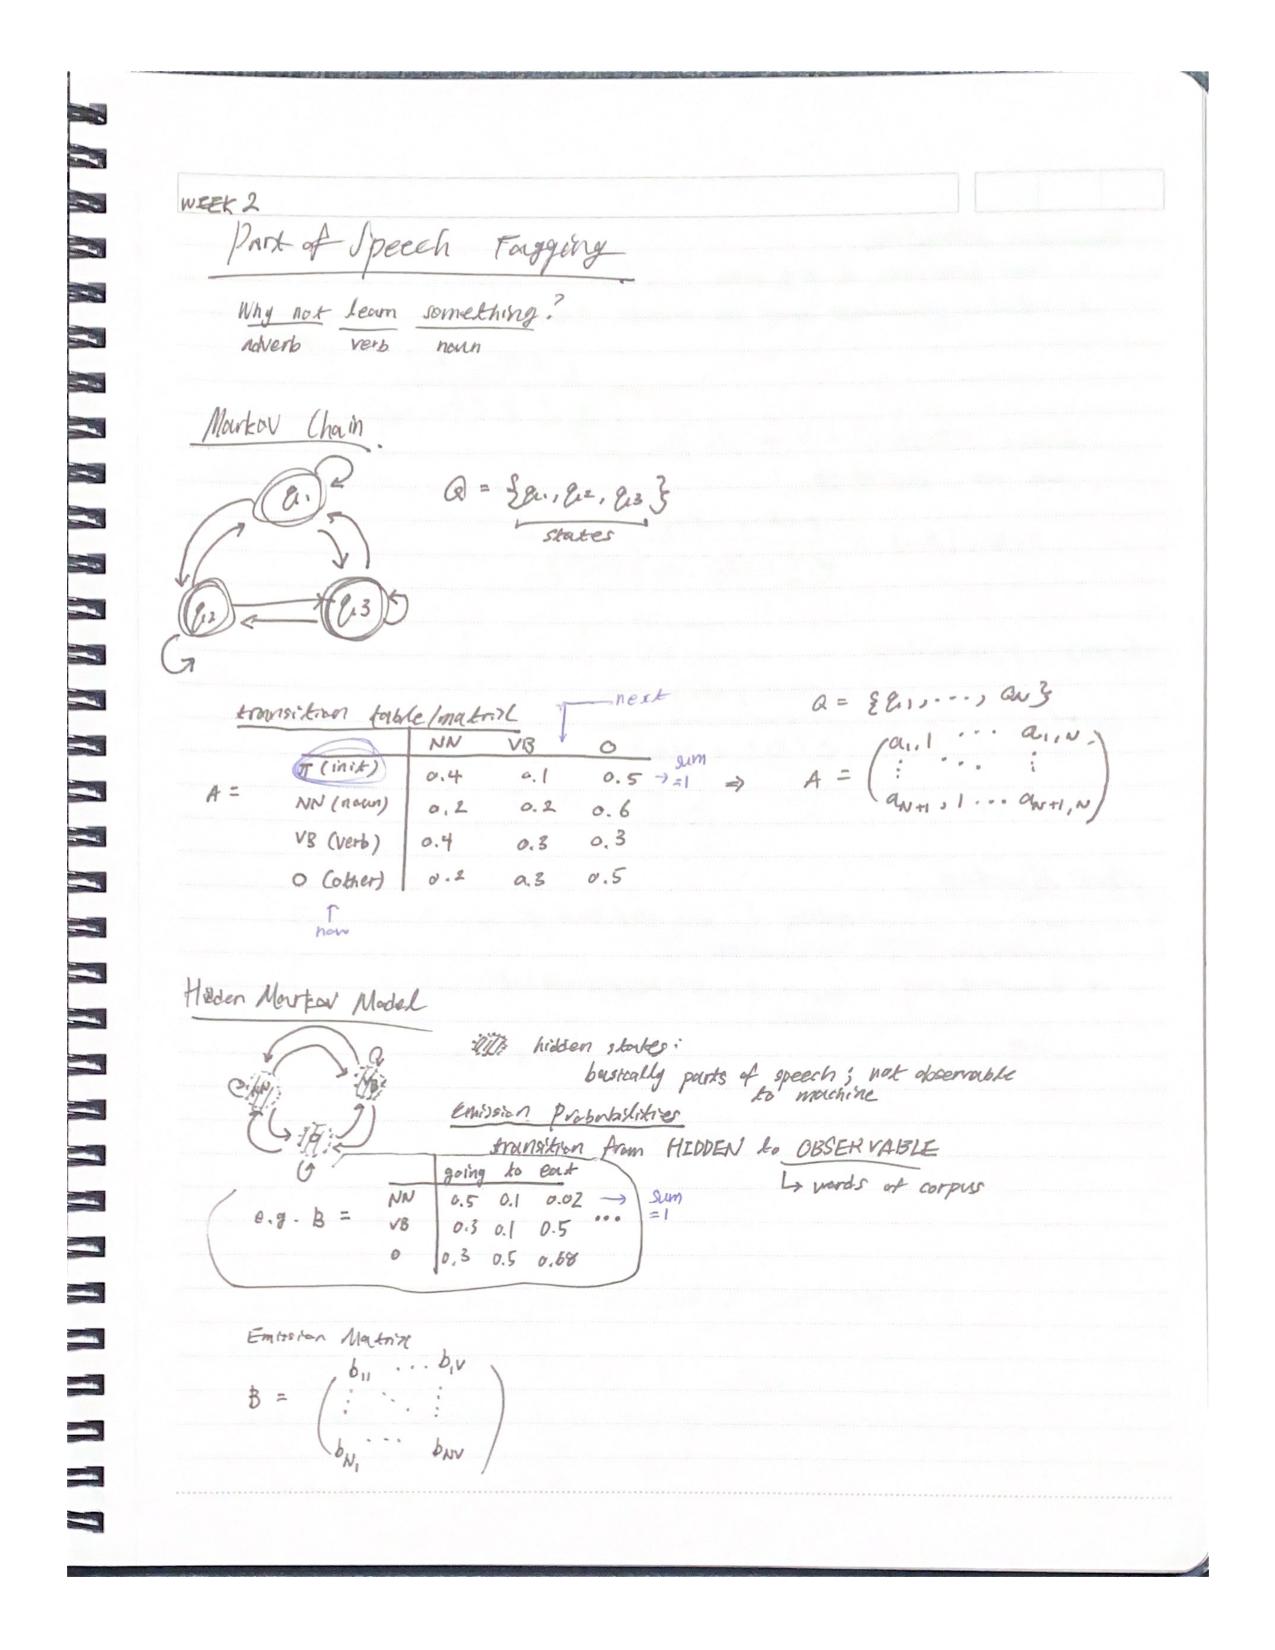 WEEK 2
Part of Speech Tagging
Why not learn something?
adverb verb noun
Markov Chain.
q1
Q = {q1, q2, q3}
states
q2 q3
next
Q = {q1, ..., QN}
transition table/matrix
NN VB O
π (init) 0.4 0.1 0.5 → sum =1 ⇒
A = NN (noun) 0.2 0.2 0.6
VB (verb) 0.4 0.3 0.3
O (other) 0.2 0.3 0.5
A = (a1,1 ... a1,N
⋮ ⋱ ⋮
aN+1,1 ... aN+1,N)
↑
now
Hidden Markov Model
NN VB
O
hidden states:
basically parts of speech; not observable
to machine
Emission Probabilities
transition from HIDDEN to OBSERVABLE
↳ words of corpus
going to eat
NN 0.5 0.1 0.02 → sum =1
e.g. B = VB 0.3 0.1 0.5 ...
O 0.3 0.5 0.68
Emission Matrix
B = (b11 ... b1V
⋮ ⋱ ⋮
bN1 ... bNV)